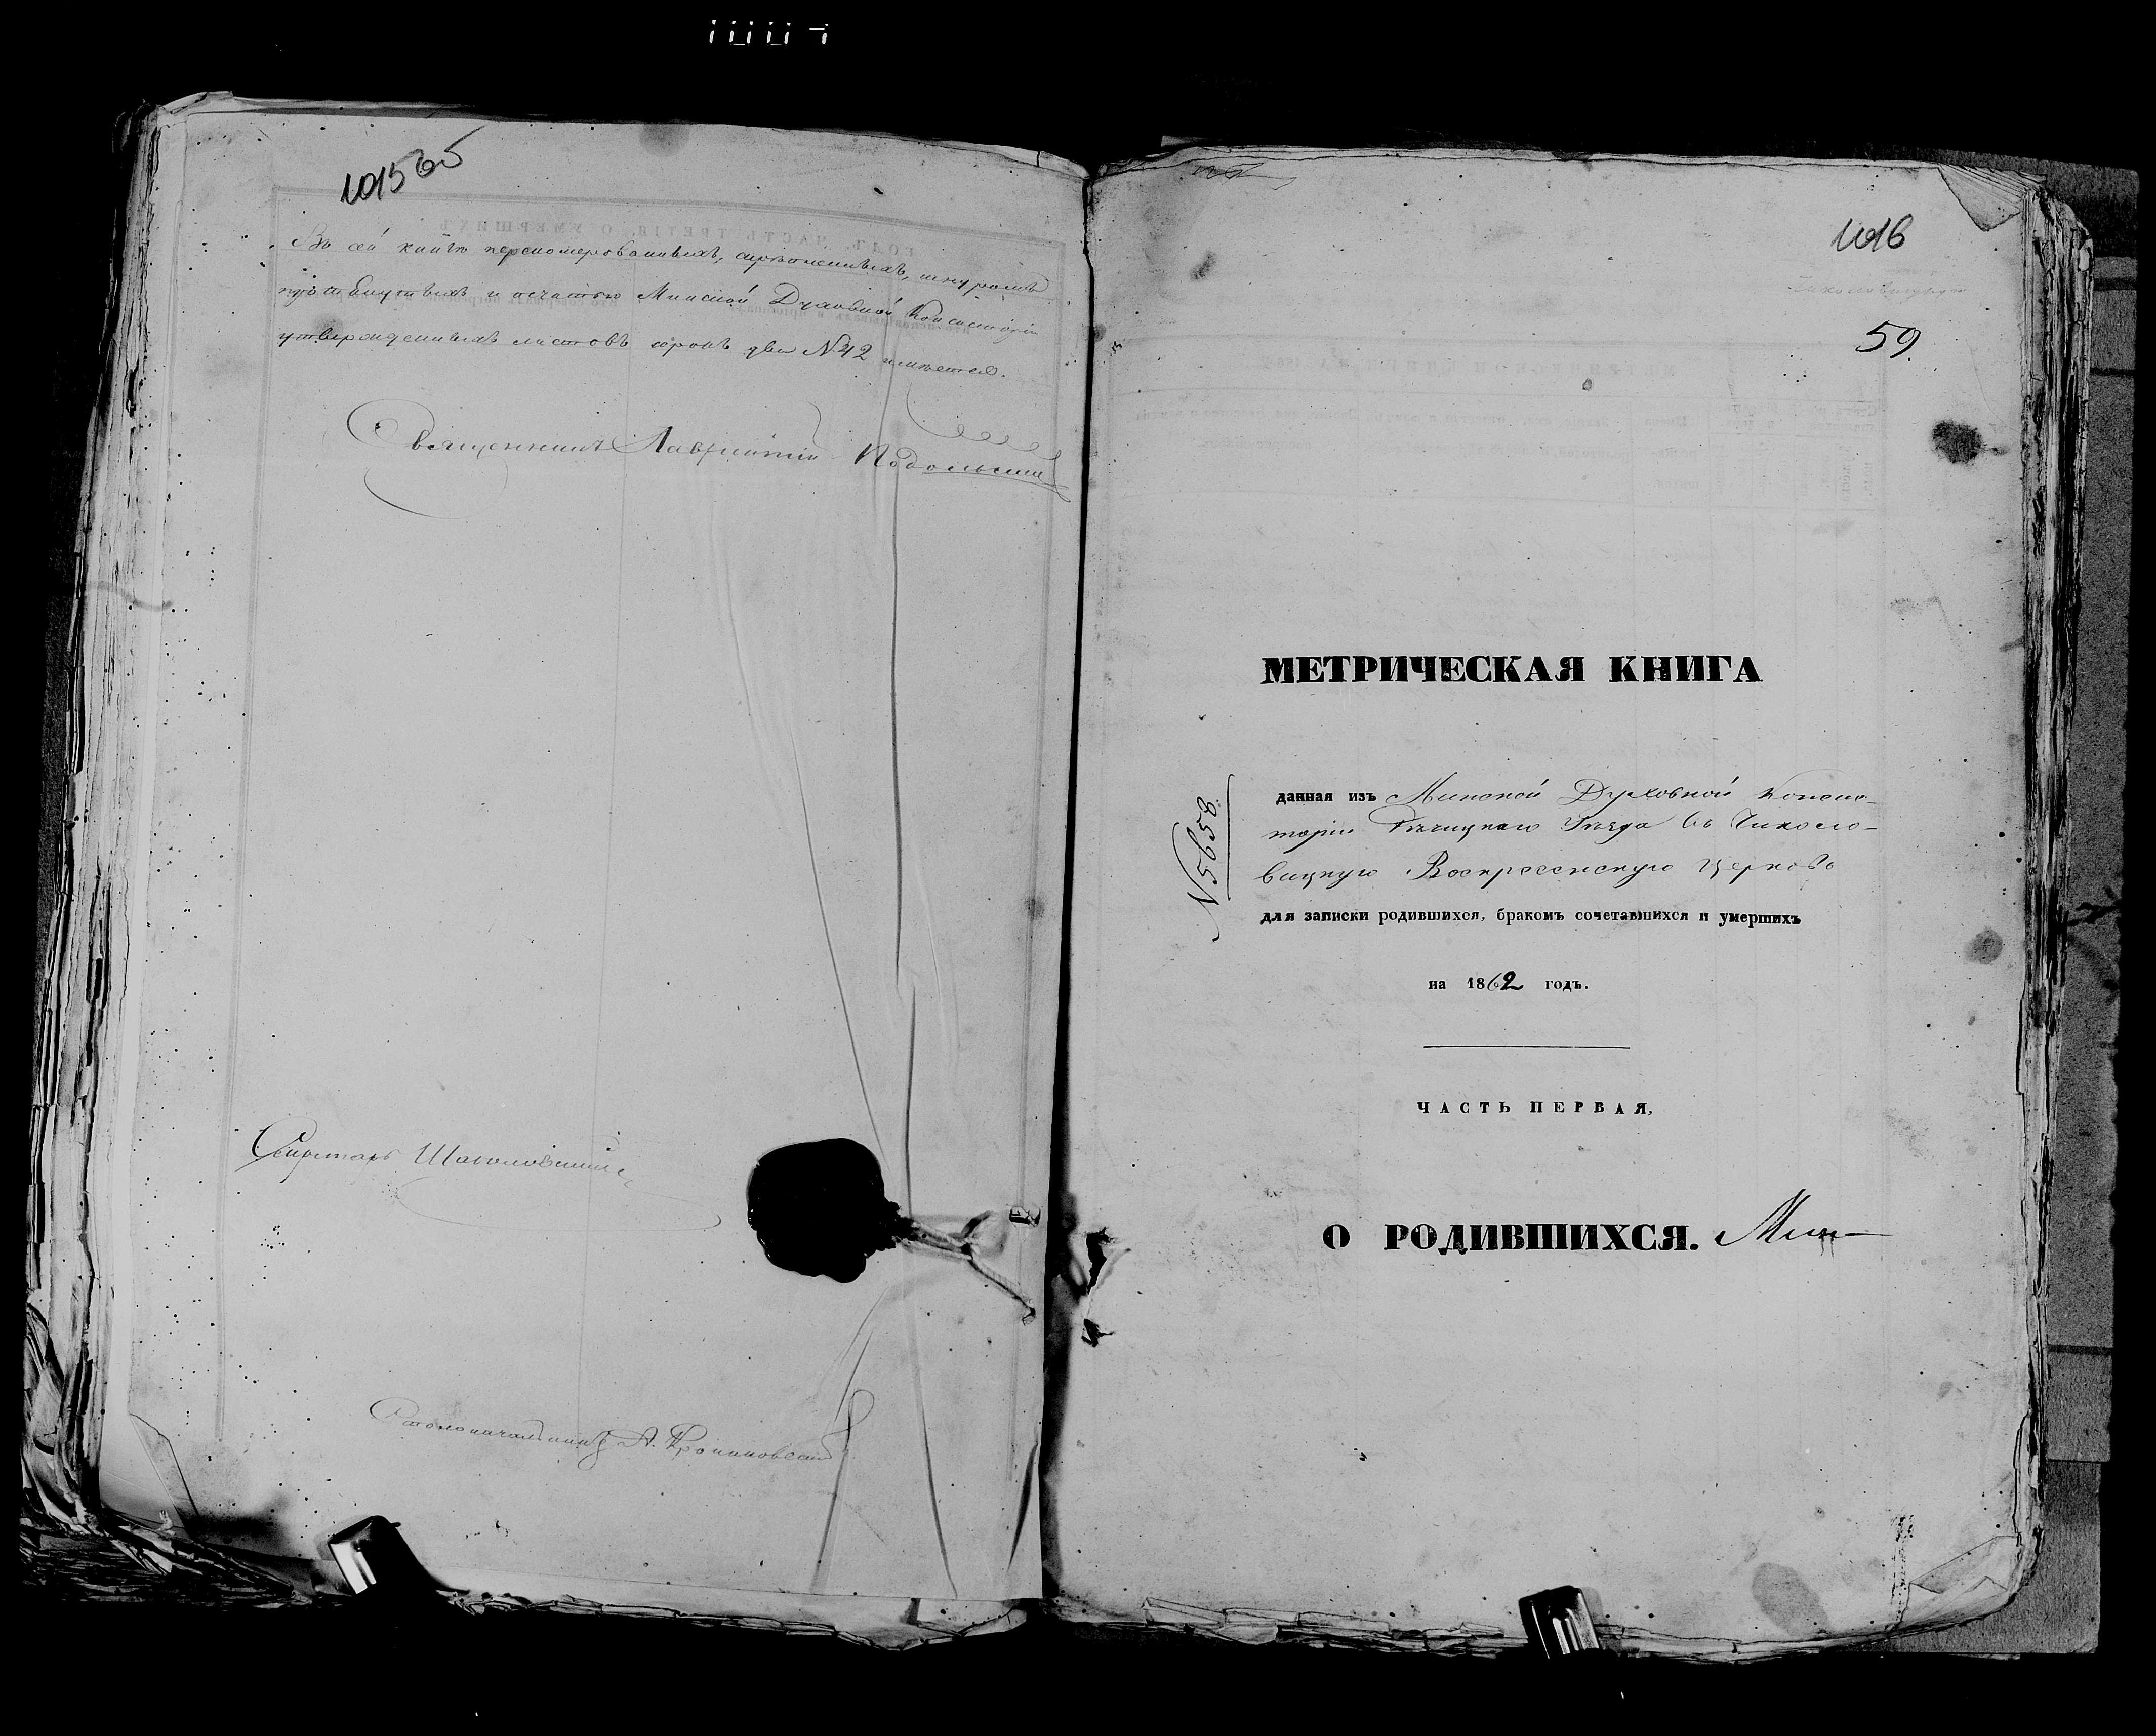 1015 об
Въ сей книгѣ перенумерованныхъ, скрѣпленныхъ, шнуромъ
протянутыхъ и печатью Минской Духовной Консисторіи
утвержденныхъ листовъ сорокъ два №42 имѣется.
Священникъ Лаврентій Подольскій
Секретарь
Столоначальникъ А.
1016
59.
МЕТРИЧЕСКАЯ КНИГА
№5658.
данная изъ Минской Духовной Консис-
торіи Рѣчицкаго Уѣзда въ Чиколо-
вицкую Воскресенскую церковь
для записки родившихся, бракомъ сочетавшихся и умершихъ
на 1862 годъ.
ЧАСТЬ ПЕРВАЯ,
О РОДИВШИХСЯ. Мин